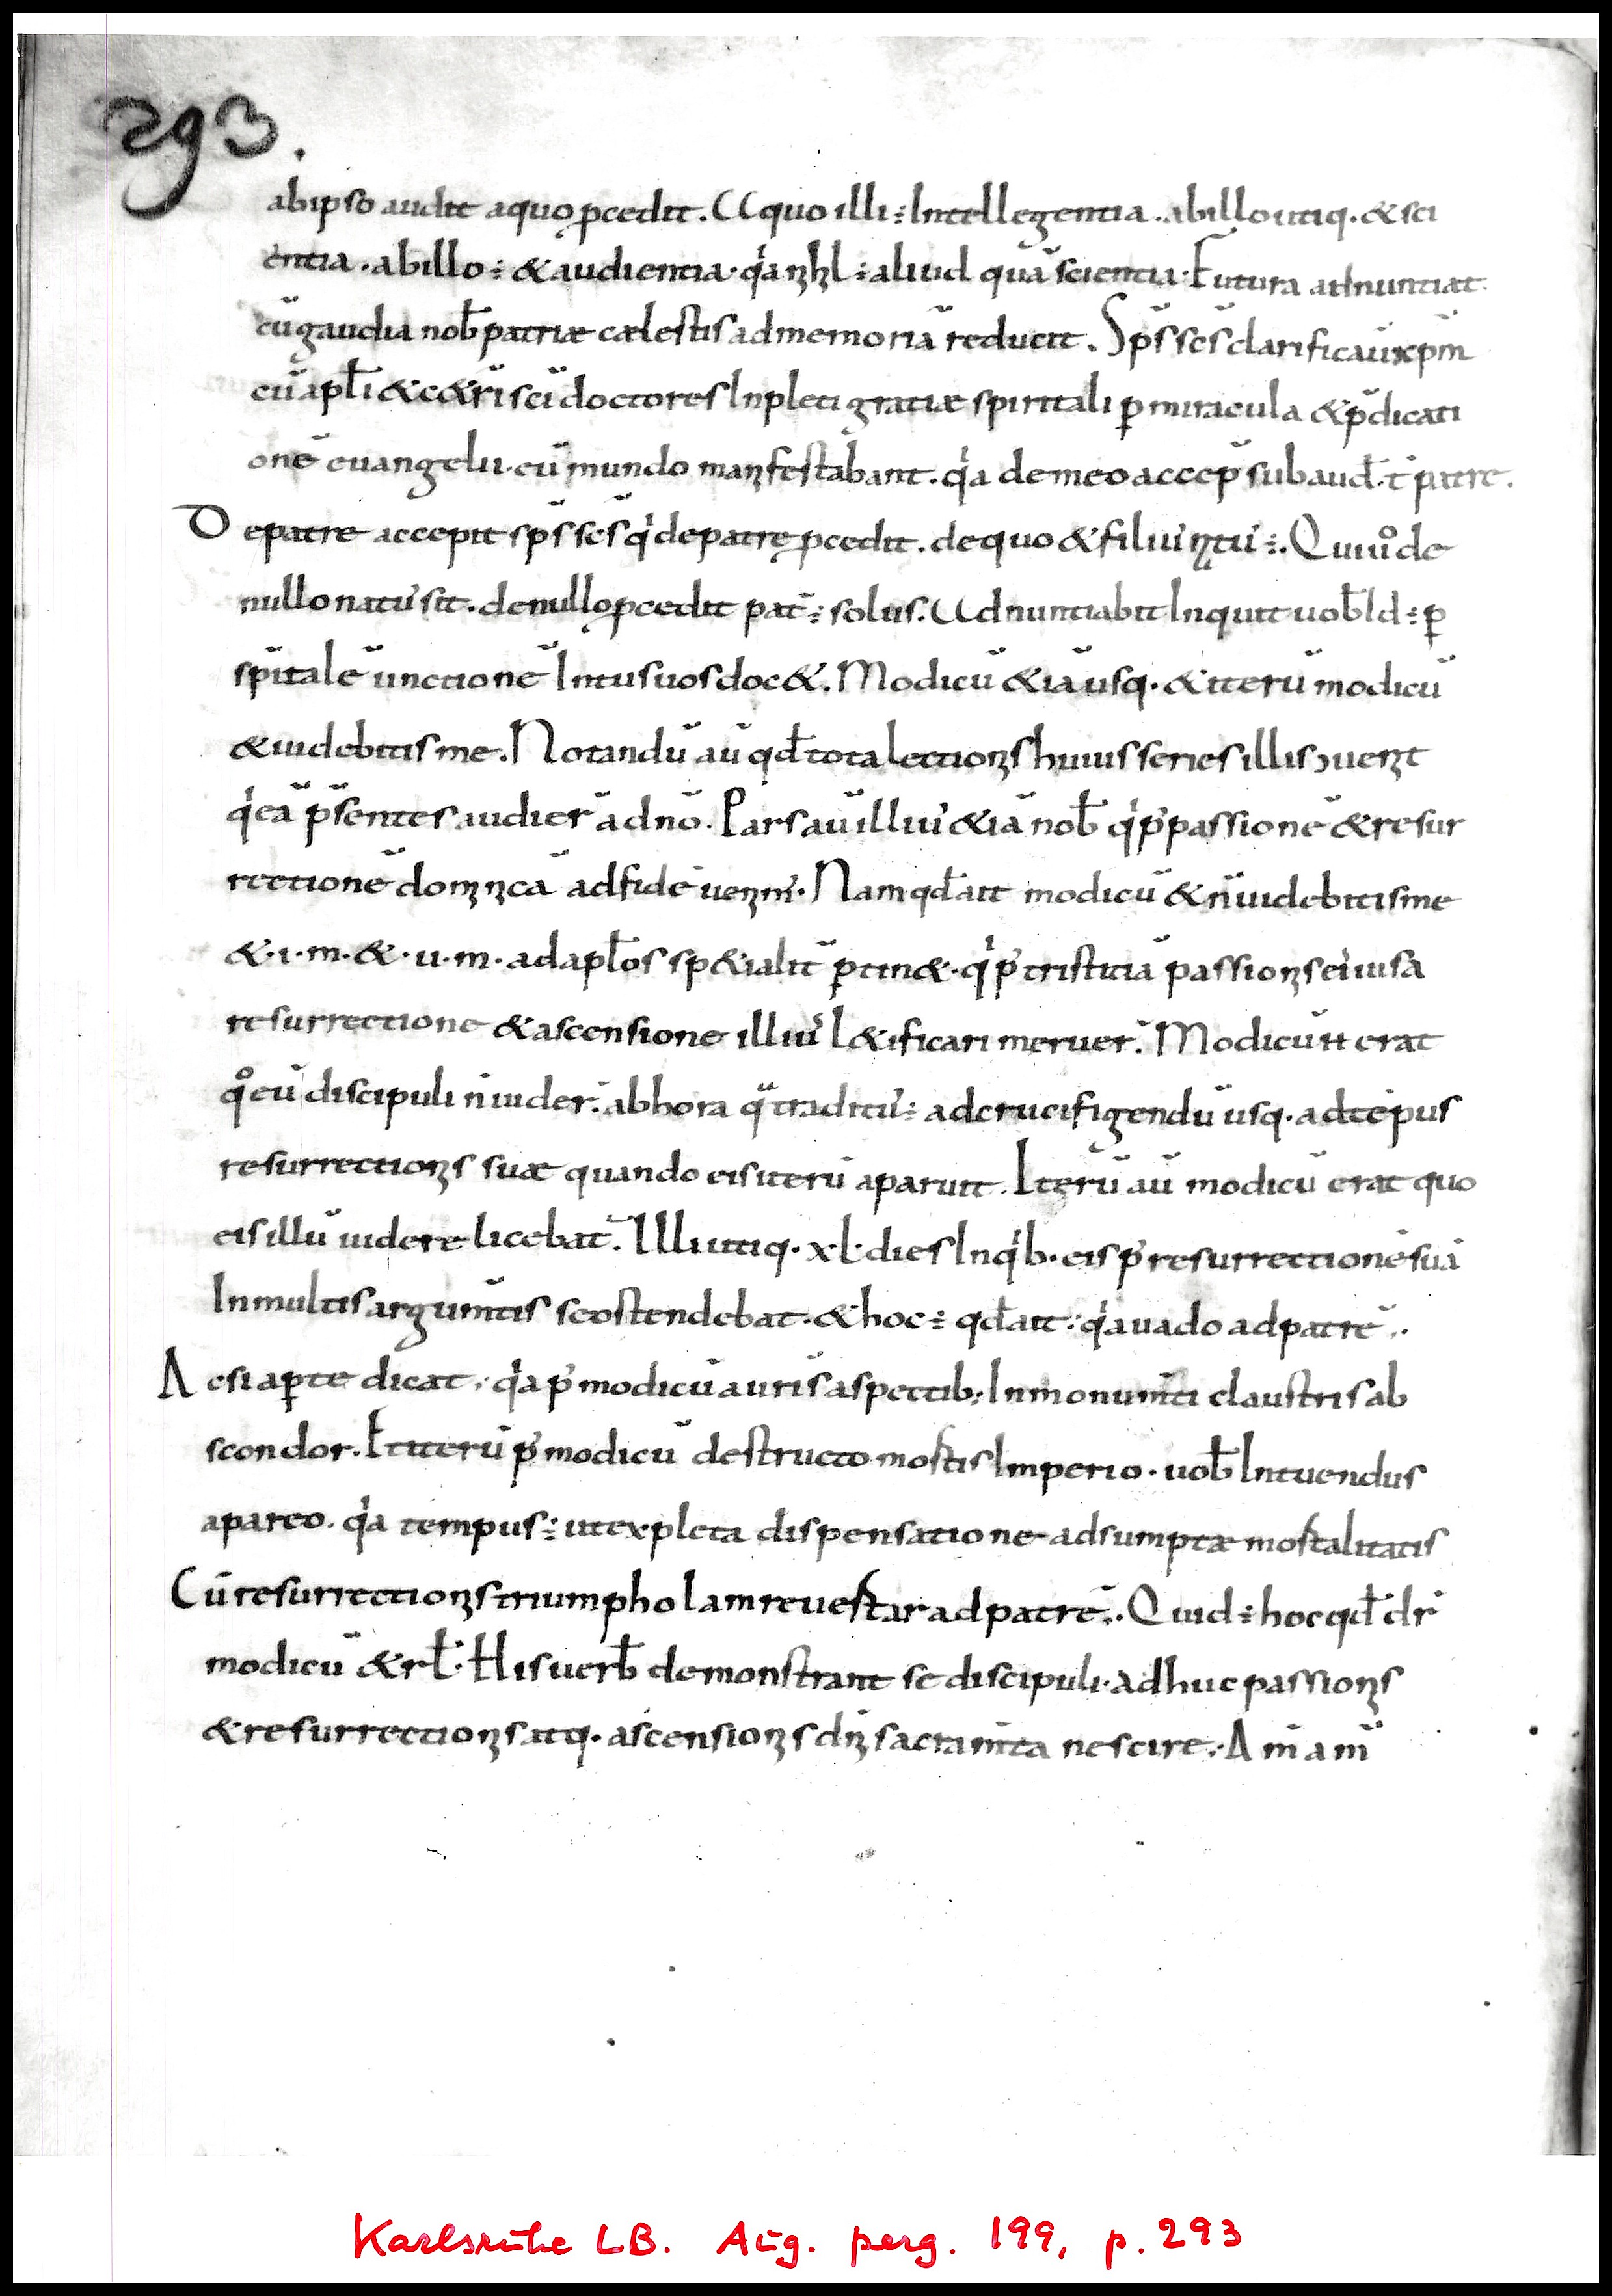 293.
ab ipso audit a quo ꝓcedit. A quo illi ÷ Intellegentia. ab illo utiq. & sci
entia. ab illo ÷ & audientia. qͥa nihl ÷ aliud quā scientia. Futura adnuntiat
cū gaudia nob̄ patriæ cælestis ad memoriā reducit. Sp̄s sc̄s clarificau̅ xp̄m
cū apl̄i & c&̄ri sc̄i doctores Inpleti gratiæ spiritali ꝑ miracula & p̄dicati
onē euangelii. eū mundo manifestabant. qͥa de meo accep̄ subaud̄. i patre.
De patre accepit sp̄s sc̄s qͥ de patre ꝓcedit. de quo & filiuʼ natuʼ ÷. Qui uͦ de
nullo natuʼ sit. de nullo ꝓcedit pat̄ ÷ solus. Adnuntiabit Inquit uob̄ Id ÷ ꝑ
sp̄italē unctionē Intus uos doc&. Modicū & iā usq. & iterū modicū
& uidebitis me. Notandū au̅ qd̄ tota lectionis huius series illis ɔuenit
qͥ eā p̄sentes audier̄ a dn̄o. Pars au̅ illiuʼ & iā nob̄ qͥ pʼ passionē & resur
rectionē dominicā ad fidē uenimʼ. Nam qd̄ ait modicū & n̄ uidebitis me
&. i. m. &. u. m. ad apl̄os sp&ialit̄ ꝑtin&. qͥ pʼ tristitiā passionis eiʼ uisa
resurrectione & ascensione illiuʼ l&ificari meruer̄. Modicū .n. erat
qͦ eū discipuli n̄ uider̄. ab hora qͣ traditʼ ÷ ad crucifigendū usq. ad tēpus
resurrectionis suæ quando eis iterū aparuit. Iterū au̅ modicū erat quo
eis illū uidere licebat. Illi utiq. xl. dies In qͥb. eis pʼ resurrectionē suā
In multis argum̄tis se ostendebat. & hoc ÷ qd̄ ait. qͥa uado ad patrē.
Ac si aꝑte dicat. qͥa pʼ modicū a ur̄is aspectib; In monum̄ti claustris ab
scondor. Et iterū pʼ modicū destructo mortis Imperio. uob̄ Intuendus
apareo. qͥa tempus ÷ ut expleta dispensatione adsumptæ mortalitatis
Cū resurrectionis triumpho Iam reuertar ad patrē. Quid ÷ hoc qd̄ dr̄
modicū & rl̄. His uerb̄ demonstrant se discipuli. adhuc passionis
& resurrectionis atq. ascensionis dn̄i sacram̄ta nescire. Am̄ am̄
Karlsruhe LB. Aug. perg. 199, p. 293